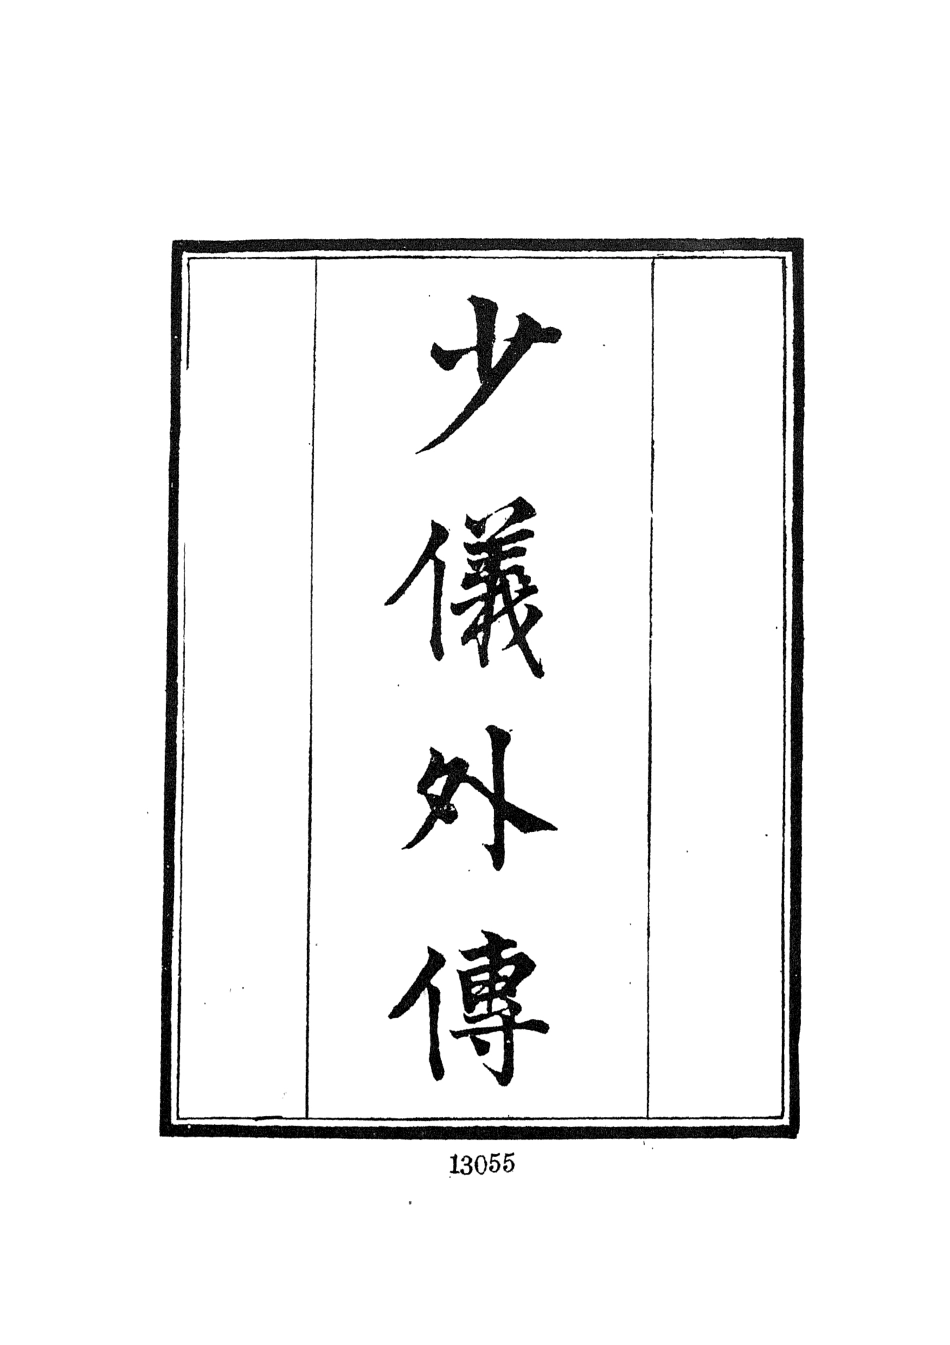 少儀外傳
13055